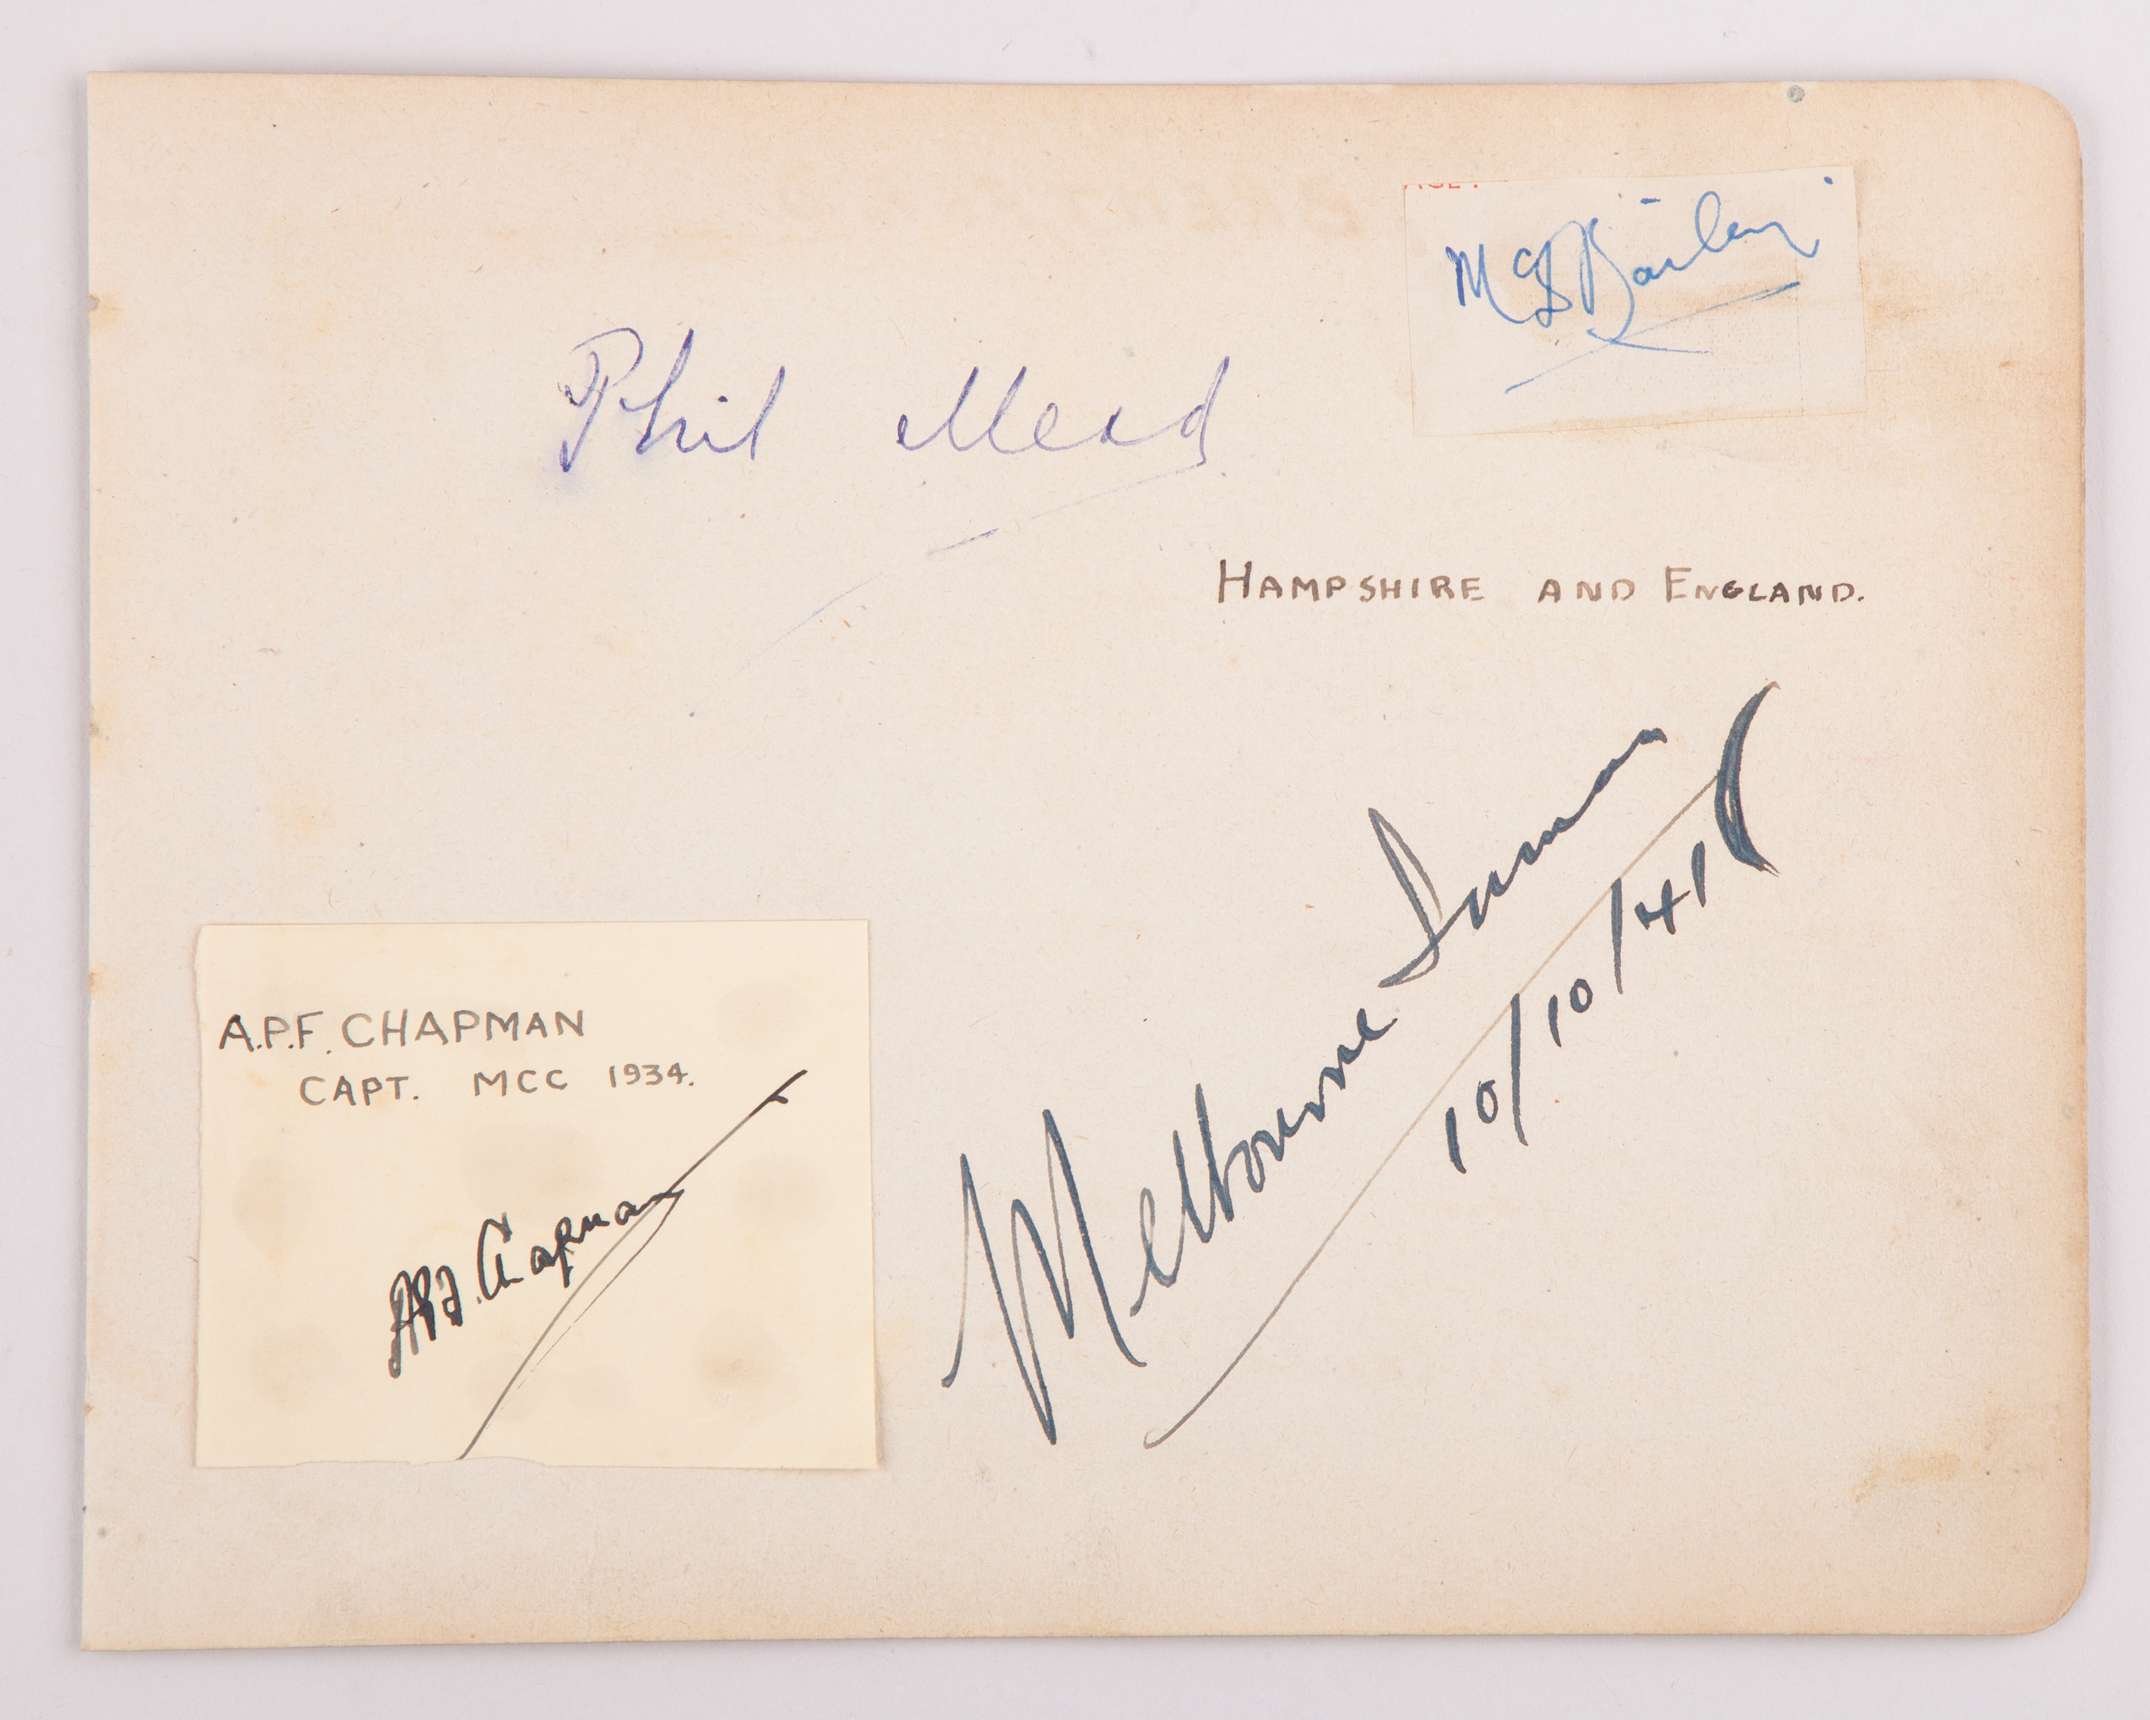 Phil Mead
HAMPSHIRE AND ENGLAND.
Melbourne Inman
10/10/41
A.P.F. CHAPMAN
CAPT. MCC 1934.
APF. Chapman